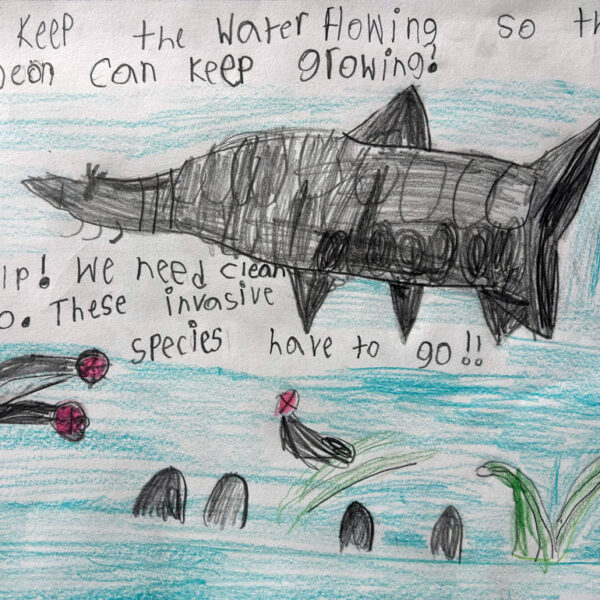 Keep the Water flowing so th
eon can keep growing!
lp! We need clean
o. These invasive
species have to go!!